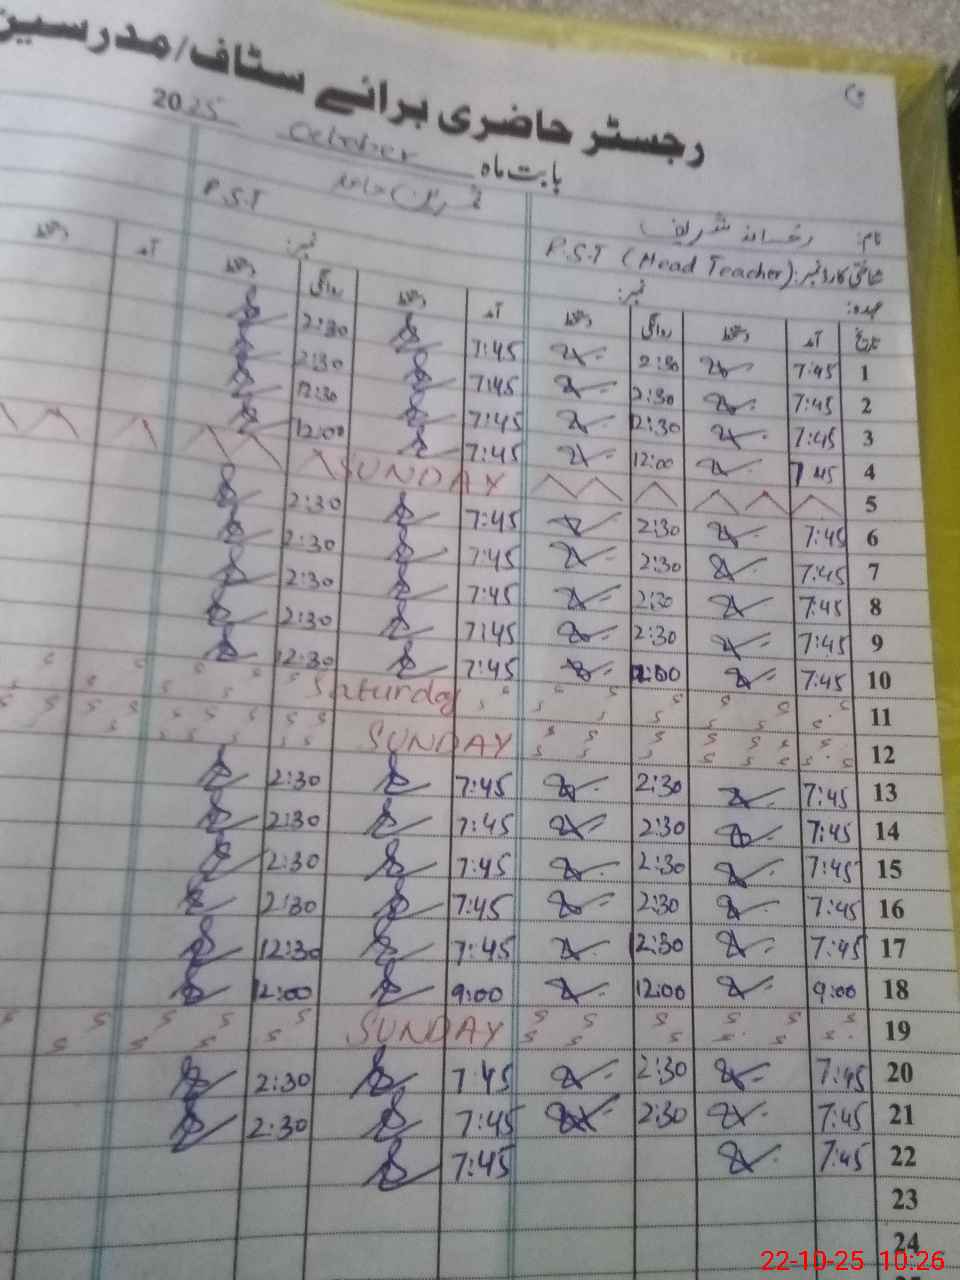 رجسٹر حاضری برائے سٹاف/مدرسین
بابت ماہ October 2025
نام: رخسانہ شریف
شناختی کارڈ نمبر: P.S.T (Head Teacher) P.S.T
عہدہ: نمبر: نمبر:
تاریخ آمد دستخط روانگی دستخط آمد دستخط روانگی دستخط آمد دستخط
1 7:45 2:30 7:45 2:30
2 7:45 2:30 7:45 2:30
3 7:45 12:30 7:45 12:30
4 7:45 12:00 7:45 12:00
5 SUNDAY
6 7:45 2:30 7:45 2:30
7 7:45 2:30 7:45 2:30
8 7:45 2:30 7:45 2:30
9 7:45 2:30 7:45 2:30
10 7:45 7:45 12:30
11 Saturday
12 SUNDAY
13 7:45 2:30 7:45 2:30
14 7:45 2:30 7:45 2:30
15 7:45 2:30 7:45 2:30
16 7:45 2:30 7:45 2:30
17 7:45 12:30 7:45 12:30
18 9:00 12:00 9:00 12:00
19 SUNDAY
20 7:45 2:30 7:45 2:30
21 7:45 2:30 7:45 2:30
22 7:45 7:45
23
24
22-10-25 10:26